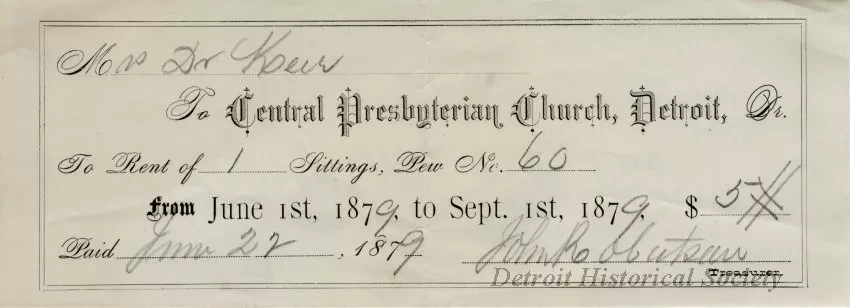 Mrs Dr Keir
To Central Presbyterian Church, Detroit, Dr.
To Rent of 1 Sittings, Pew No. 60
From June 1st, 1879, to Sept. 1st, 1879, $ 5
Paid June 22, 1879 John Robertson
Detroit Historical Society
Treasurer